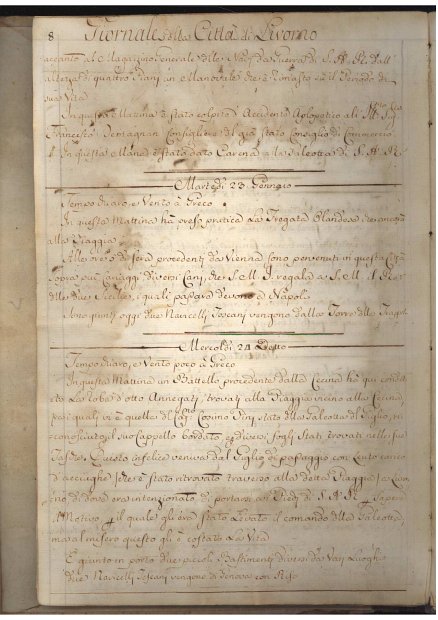 8 Giornale della Città di Livorno
accanto al Magazino Generale delle Navi da Guerra di S. A. R. dall'
altezza di quattro Piani un Manovale che è rimasto in Pericolo di
sua Vita
In questa Mattina è stato colpito d'Accidente Apopletico al
Francesco Demagnan Consigliere del già stato Consiglio di Commercio
In questa è stato dato Carena a la Galeotta di S. A. R.
Martedì 23 Gennaio
Tempo chiaro, e Vento à Greco
In questa Mattina hà preso pratica la Fregata Olandese
alla Piaggia
Alle ore di sera procedenti da Vienna sono pervenuti in questa Città
sopra più Carriaggi diversi Cani, che S. M. I. regala a S. M. il Re
delle due Sicilie, i quali passare devono a Napoli
Sono giunti oggi due Navicelli Toscani vengono dalla Torre delle
Mercoldì 24 Detto
Tempo chiaro, e Vento poco à Greco
In questa Mattina un Battello procedente dalla Cecina hà qui condot
to La roba d'otto Annegati, trovati alla Piaggia vicino alla Cecina,
frà quali vi è quella di Cosimo Pini stato della Galeotta di Giglio, ri
conosciuto il suo Cappello bordato, e diversi fogli stati trovati nelle sue
Tasche. Questo infelice veniva dal Giglio di passaggio con Leuto carico
d'acciughe
no di dove era intenzionato di portarsi ai Piedi di S. A. R. Sapere
il Motivo per il quale gli era stato Levato il comando della Galeotta,
ma al misero questo gli è costato La Vita
È giunto in porto due piccoli Bastimenti diversi da Vari Luoghi
due Navicelli Toscani vengono di Genova con Riso